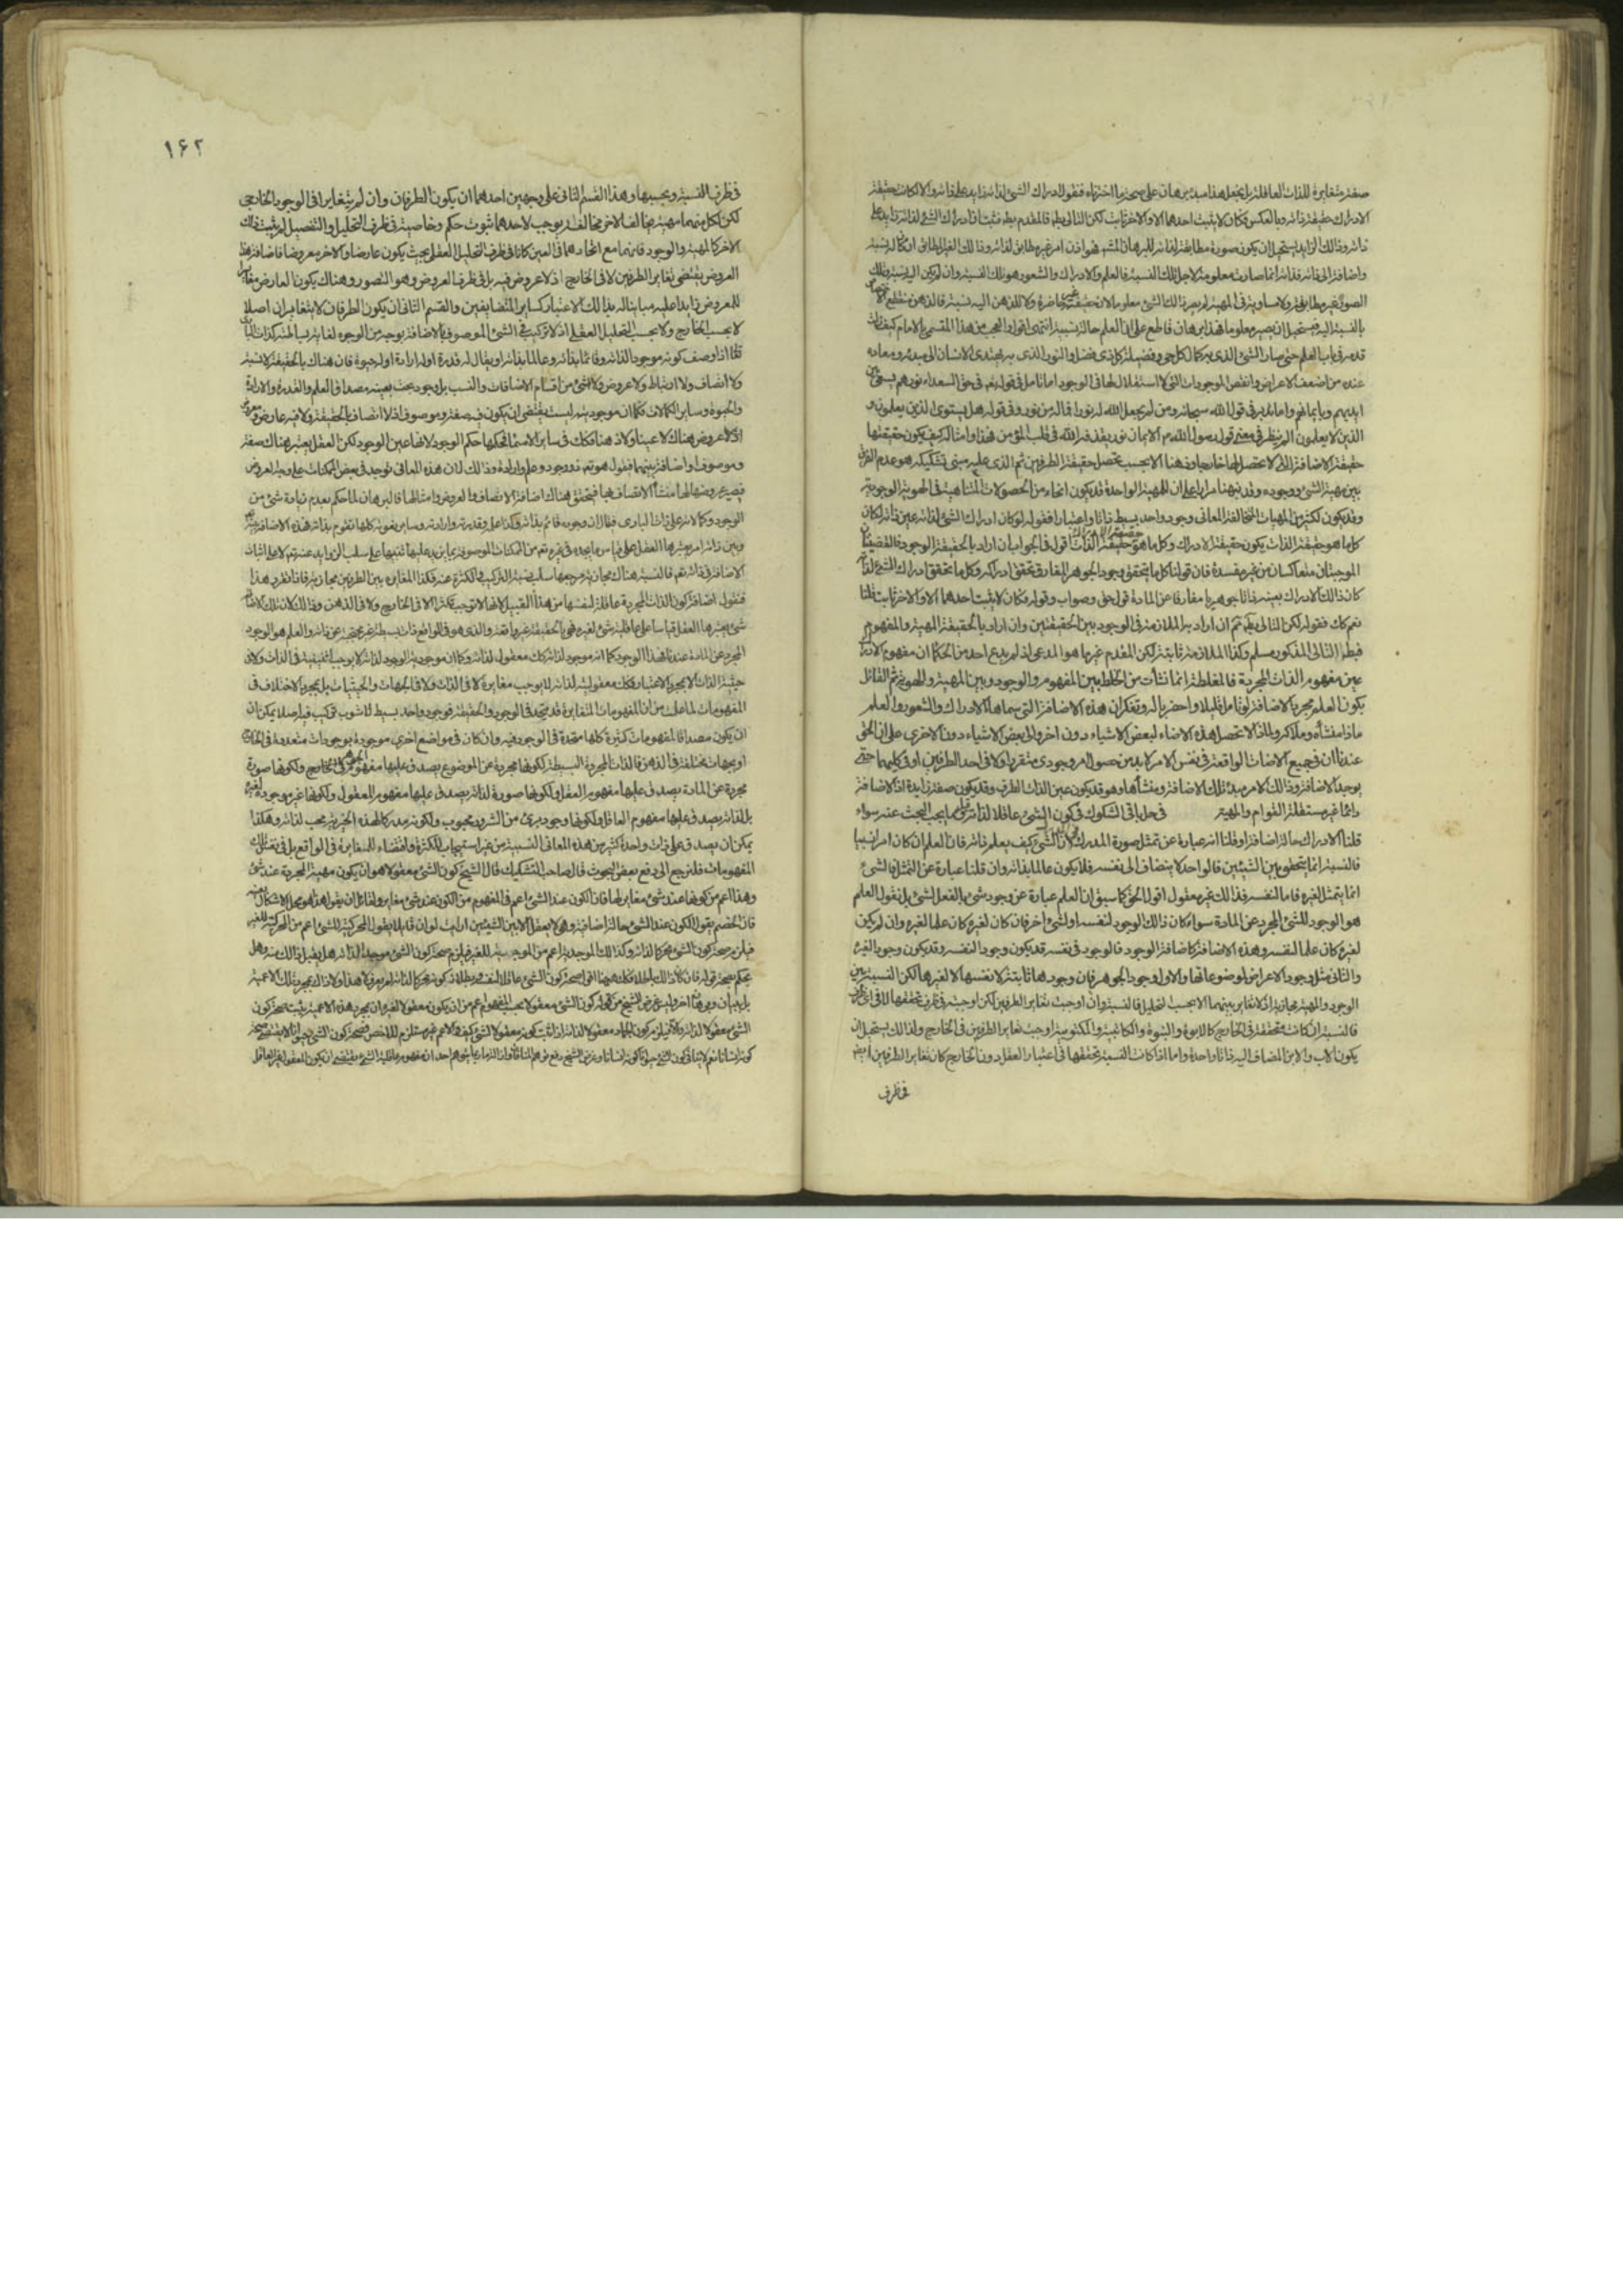 صفة متغايرة للذات العاقلة بل يجعل هذا مبدء برهان على صحة ما اخترناه فنقول ادراك الشئ لذاته زايد على ذاته والا لكانت حقيقة
الادراك حقيقة ذاته وبالعكس وكان لا يثبت احدهما الا والاخر ثابت لكن التالى بط فالمقدم بط فثبت ان ادراك الشئ لذاته زايد على
ذاته وذلك الزايد يستحيل ان يكون صورة مطابقة لذاته
واضافة الى ذاته فذاته انما صارت معلومة لاجل تلك النسبة فالعلم والادراك والشعور هو تلك النسبة وان لم يكن اليه نسبة وتلك
الصورة غير مطابقة ولا مساوية فى المهية لم يصر ذلك الشئ معلوما لان حقيقته غير حاضرة ولا للذهن اليه نسبة فالذهن منقطع الاختصاص
بالنسبة اليه فيستحيل ان يصير معلوما فهذا برهان قاطع على ان العلم حالة نسبية انتهى اقول والعجب من هذا المسمى بالامام كيف زلت
قدمه فى باب العلم حتى صار الشئ الذى به كمال كل حى وفضيلة كل ذى فضل والنور الذى به يهتدى الانسان الى مبدئه ومعاده
عنده من اضعف الاعراض وانقص الموجودات التى لا استقلال لها فى الوجود اما تامل فى قوله تع فى حق السعداء نورهم يسعى بين
ايديهم وبايمانهم واما تدبر فى قول الله سبحانه ومن لم يجعل الله له نورا فما له من نور وفى قوله هل يستوى الذين يعلمون و
الذين لا يعلمون الم ينظر فى معنى قول رسول الله ص الايمان نور يقذفه الله فى قلب المؤمن فهذا وامثاله كيف يكون حقيقتها
حقيقة الاضافة التى لا تحصل لها خارجا وذهنا الا بحسب تحصل حقيقة الطرفين ثم الذى عليه مبنى تشكيكه هو عدم الفرق
بين مهية الشئ ووجوده وقد نبهناك مرارا على ان للمهية الواحدة قد يكون انحاء من الحصولات المتباينة فى الهوية الوجودية
وقد يكون لكثير من المهيات المتخالفة المعانى وجود واحد بسيط ذاتا واعتبارا فقوله لو كان ادراك الشئ لذاته عين ذاته لكان
كل ما هو حقيقة الذات يكون حقيقة الادراك وكل ما هو حقيقة الادراك حقيقة الذات اقول فى الجواب ان اراد بالحقيقة الوجود فالقضيتان
الموجبتان منعاكستان من غير مفسدة فان قولنا كل ما يتحقق وجود الجوهر المفارق تحقق ادراكه وكل ما تحقق ادراك الشئ لذاته
كان ذلك الادراك بعينه ذاتا جوهريا مفارقا عن المادة قول حق وصواب وقوله فكان لا يثبت احدهما الا والاخر ثابت قلنا
نعم كك فقوله لكن التالى بط ثم ان اراد به الملازمة فى الوجود بين الحقيقتين وان اراد بالحقيقة المهية والمفهوم
فبطلان التالى المذكور مسلم وكذا الملازمة ثابتة لكن المقدم غير ما هو المدعى اذ لم يدع احد من الحكماء ان مفهوم الادراك
عين مفهوم الذات المجردة فالمغلطة انما نشات من الخلط بين المفهوم والوجود وبين المهية والهوية ثم القائل
بكون العلم مجرد الاضافة لو تامل قليلا واحضر باله وتفكر ان هذه الاضافة التى سماها الادراك والشعور والعلم
ماذا منشأه وملاكه ولماذا لا تحصل هذه الاضافة لبعض الاشياء دون اخر والى بعض الاشياء دون الاخرى على ان الحق
عندنا ان فى جميع الاضافات الواقعة فى نفس الامر لا بد من حصول امر وجودى متقرر اولا فى احد الطرفين او فى كليهما حتى
يوجد الاضافة وذلك الامر مبدء تلك الاضافة ومنشأها وهو قد يكون عين الذات الطرف وقد يكون صفة زايدة اذ الاضافة
دائما غير مستقلة القوام والمهية فى حل باقى الشكوك فى كون الشئ عاقلا لذاته وما يجب البحث عنه سواء
قلنا الادراك حالة اضافية او قلنا انه عبارة عن تمثل صورة المدرك ان الشئ كيف يعلم ذاته فان العلم ان كان امرا نسبيا
فالنسبة انما يتحقق بين الشيئين فالواحد لا ينضاف الى نفسه فلا يكون عالما بذاته وان قلنا عبارة عن التمثل فالشئ
انما يتمثل لغيره فاما لنفسه فذلك غير معقول اقول الحق كما سبق ان العلم عبارة عن وجود شئ بالفعل لشئ بل نقول العلم
هو الوجود للشئ المجرد عن المادة سواء كان ذلك الوجود لنفسه او لشئ اخر فان كان لغيره كان علما لغيره وان لم يكن
لغيره كان علما لنفسه وهذه الاضافة كاضافة الوجود فالوجود فى نفسه قد يكون وجودا لنفسه وقد يكون وجودا لغيره
والثانى مثل وجود الاعراض لموضوعاتها والاول وجود الجوهر فان وجودها ثابتة لانفسها لا لغيرها لكن النسبة بين
الوجود والمهية مجازية اذ لا تغاير بينهما الا بحسب التحليل فالنسبة وان اوجبت تغاير الطرفين لكن اوجبته فى ظرف تحققها لا فى اى ظرف
فالنسبة ان كانت متحققة فى الخارج كالابوة والبنوة والكاتبية والمكتوبية اوجبت تغاير الطرفين فى الخارج ولذلك يستحيل ان
يكون الاب والابن المضاف اليه ذاتا واحدة واما اذا كانت النسبة تحققها فى اعتبار العقل دون الخارج كان تغاير الطرفين ايضا
فى ظرف
۱۶۲
فى ظرف النسبة وبحسبها وهذا القسم الثانى على وجهين احدهما ان يكون الطرفان وان لم يتغايرا فى الوجود الخارجى
لكن لكل منهما مهية تخالف الاخر مخالفة يوجب لاحدهما ثبوت حكم وخاصية فى ظرف التحليل والتفصيل لم يثبت ذلك
الاخر كالمهية والوجود فانهما مع اتحادهما فى العين كانا فى ظرف التحليل العقلى بحيث يكون عارضا والاخر معروضا فاضافة هذا
العروض يقتضى تغاير الطرفين لا فى الخارج اذ لا عروض فيه بل فى ظرف العروض وهو التصور وهناك يكون العارض مغايرا
للمعروض زايدا عليه مباينا له بذلك الاعتبار كساير المتضايفين والقسم الثانى ان يكون الطرفان لا يتغايران اصلا
لا بحسب الخارج ولا بحسب التحليل العقلى اذ لا تركيب فى الشئ الموصوف بالاضافة بوجه من الوجوه لغاية بساطته كذات البارى
تعالى اذا وصف كونه موجودا لذاته وقائما بذاته وعالما بذاته او يقال له قدرة او له ارادة او له حيوة فان هناك بالحقيقة لا نسبة
ولا اتصاف ولا ارتباط ولا عروض ولا شئ من اقسام الاضافات والنسب بل وجود بحت بعينه مصداق العلم والقدرة والارادة
والحيوة وساير الكمالات وكما ان موجوديته ليست يقتضى ان يكون فيه صفة وموصوف اذ لا اتصاف بالحقيقة ولا فيه عارض ومعروض
اذ لا عروض هناك لا عينا ولا ذهنا فكك فى ساير الاسماء لحكمها حكم الوجود لانها عين الوجود لكن العقل يعتبر هناك صفة
وموصوفا واضافة بينهما فنقول هو تع ذو وجود وعلم وارادة وذلك لان هذه المعانى توجد فى بعض الممكنات على وجه العروض
فيصير عروضها لها منشأ الاتصاف بها فيتحقق هناك اضافة الاتصاف والعروض وامثالها فالبرهان لما حكم بعدم زيادة شئ من
الوجود وكمالاته على ذات البارى فقال ان وجوده قائم بذاته وكذا علمه وقدرته وارادته وساير نعوته كلها تقوم بذاته فهذه الاضافة بينه
وبين ذاته امر يعتبرها العقل على قياس ما يجده فى غيره تع من الممكنات الموصوفة بما يزيد عليها تنبيها على سلب الزوايد عنه تع لا على اثبات
الاضافة فى ذاته تع فالنسبة هناك مجازية مرجعها سلب نسبة التركيب والكثرة عنه فكذا المغايرة بين الطرفين مجازية فاذا تقرر هذا
فنقول اضافة كون الذات المجردة عاقلة لنفسها من هذا القبيل لانها لا توجب تكثرا لا فى الخارج ولا فى الذهن وذلك لان تلك الاضافة
شئ يعتبرها العقل قياسا على عاقلية شئ لغيره فهى بالحقيقة غير واقعة والذى هو فى الواقع ذات بسيطة غير محتجبة عن ذاته والعلم هو الوجود
المجرد عن المادة عندنا فهذا الوجود كما انه موجود لذاته كك معقول لذاته وكما ان موجودية الوجود لذاته لا يوجب اثنينية فى الذات ولا فى
حيثية الذات الا بمجرد الاعتبار فكك معقوليته لذاته لا يوجب مغايرة لا فى الذات ولا فى الجهات والحيثيات بل بمجرد الاختلاف فى
المفهومات لما علمت من ان المفهومات المتغايرة قد يتحد فى الوجود والحقيقة فوجود واحد بسيط لا شوب تركيب فيه اصلا يمكن ان
ان يكون مصداقا لمفهومات كثيرة كلها متحدة فى الوجود فيه وان كان فى مواضع اخرى موجودة بوجودات متعددة فى الخارج
او بجهات مختلفة فى الذهن فالذات المجردة البسيطة لكونها مجردة عن الموضوع يصدق عليها مفهوم الجوهر فى الخارج ولكونها صورة
مجردة عن المادة يصدق عليها مفهوم العقل ولكونها صورة لذاته يصدق عليها مفهوم المعقول ولكونها غير موجودة لغيره
بل لذاته يصدق عليها مفهوم العاقل ولكونها وجود برئ من الشرور محبوب ولكونه مدركا لهذه الخيرية محب لذاته وهكذا
يمكن ان يصدق على ذات واحدة كثير من هذه المعانى النسبية من غير استيجاب للكثرة واقتضاء للمغايرة فى الواقع بل فى تعقل تلك
المفهومات فلنرجع الى دفع بعض البحوث قال صاحب التشكيك قال الشيخ كون الشئ معقولا هو ان يكون مهيته المجردة عند شئ
وهذا اعم من كونها عند شئ مغاير لها فان الكون عند الشئ اعم فى المفهوم من الكون عند شئ مغاير ولقائل ان يقول هذا هو محل الاشكال بعينه
فان الخصم يقول الكون عند الشئ حالة اضافية وهى لا يعقل الا بين الشيئين ارايت لو ان قايلا يقول المحركية للشئ اعم من المحركية للغير
فيلزم صحة كون الشئ محركا لذاته وكذلك الموجدية اعم من الموجدية للغير فيلزم صحة كون الشئ موجدا لذاته هل يقبل ذلك منه وهل
يحكم بصحة قوله فان كان ذلك باطلا فكذا هيهنا اقول صحة كون الشئ عاقلا لنفسه وبطلان كونه محركا لذاته
بل ببيان وبرهان اخر وليس غرض الشيخ من قوله كون الشئ معقولا بحسب المفهوم اعم من ان يكون معقولا لغيره ان بمجرد هذه الاعمية يثبت صحة كون
الشئ معقولا لذاته